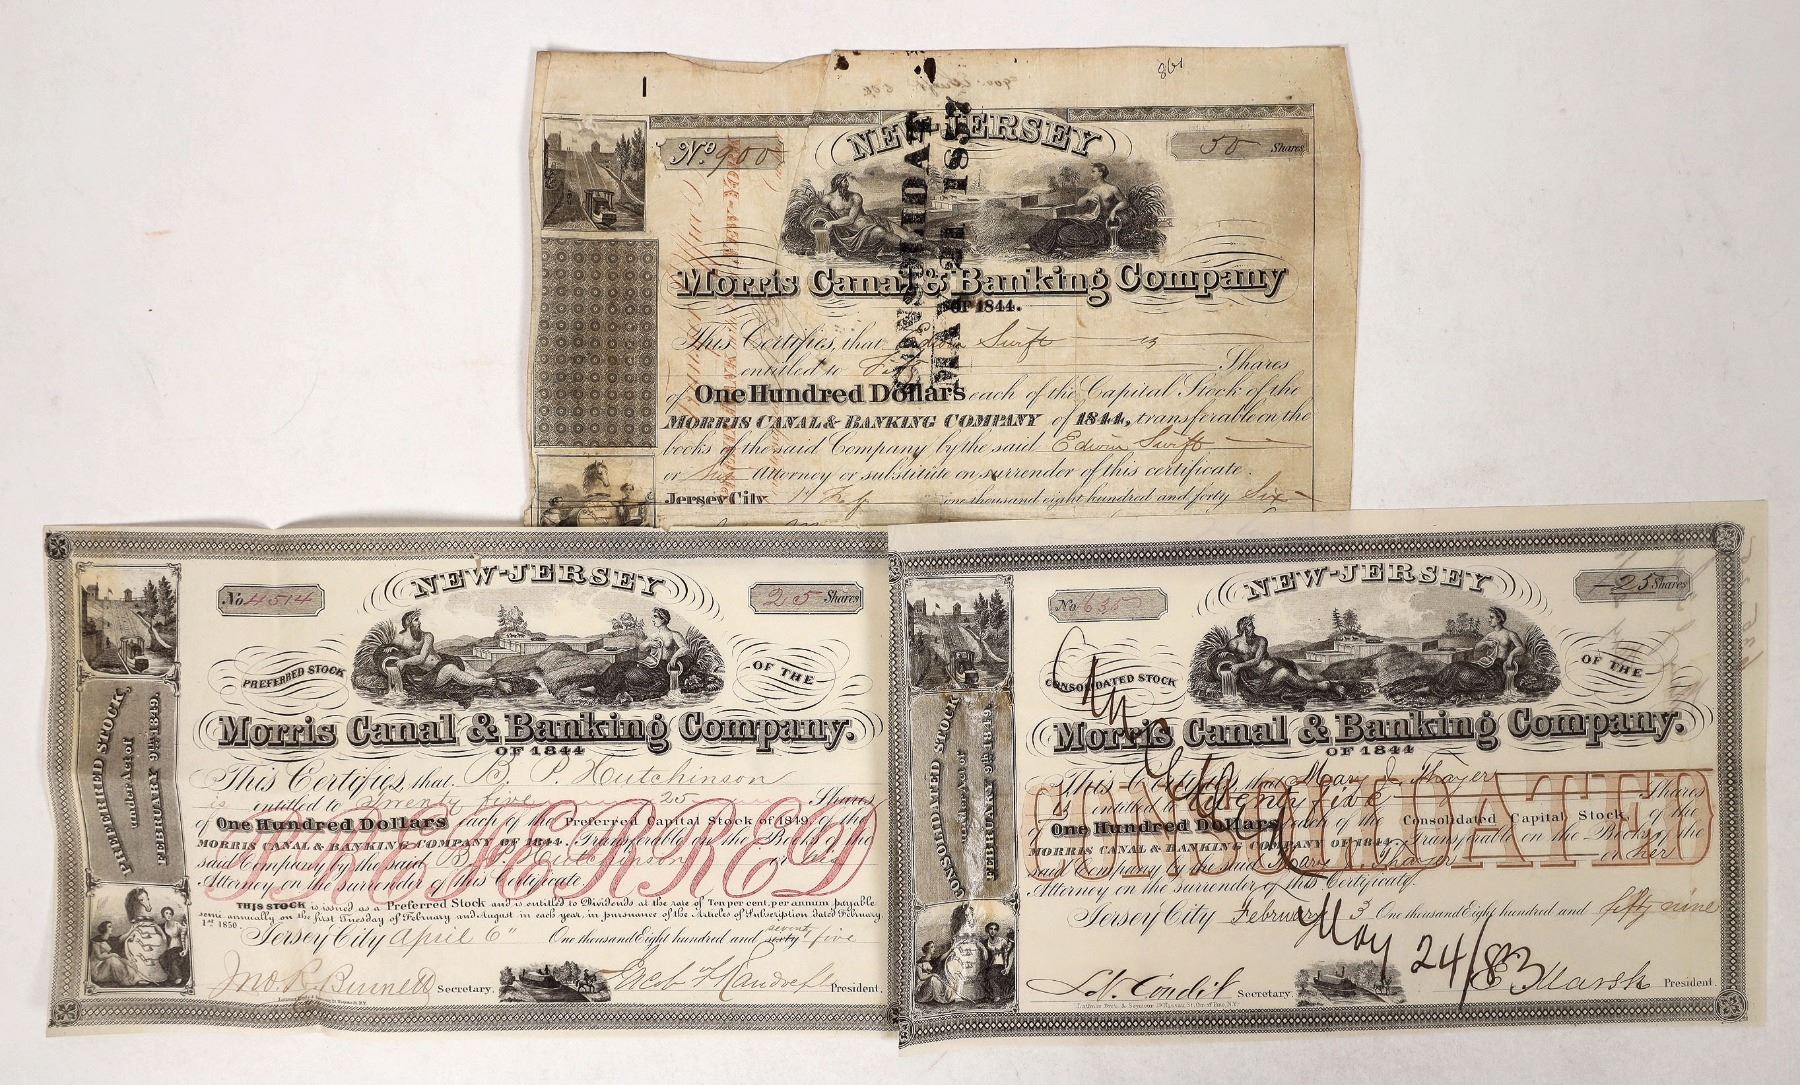 861
NEW JERSEY
No 900
50 Shares
Morris Canal & Banking Company
OF 1844.
This Certifies, that Edwin Swift
entitled to Fifty Shares
of One Hundred Dollars each of the Capital Stock of the
MORRIS CANAL & BANKING COMPANY of 1844, transferable on the
books of the said Company by the said Edwin Swift
or his Attorney or substitute on surrender of this certificate.
Jersey City 17 Feby one thousand eight hundred and forty Six
NEW-JERSEY
No 4514
25 Shares
PREFERRED STOCK
OF THE
Morris Canal & Banking Company.
OF 1844
PREFERRED STOCK,
under Act of
FEBRUARY 9th 1849.
This Certifies, that B. P. Hutchinson
is entitled to Twenty five 25 Shares
of One Hundred Dollars each of the Preferred Capital Stock of 1849, of the
MORRIS CANAL & BANKING COMPANY OF 1844. Transferable on the Books of the
said Company by the said B. P. Hutchinson or his
Attorney on the surrender of this Certificate
PREFERRED
THIS STOCK is issued as a Preferred Stock and is entitled to Dividends at the rate of Ten per cent, per annum payable
semi-annually on the first Tuesday of February and August in each year, in pursuance of the Articles of Subscription dated February
1st 1850.
Jersey City April 6" One thousand Eight hundred and sixty seventy five
Secretary.
President.
NEW-JERSEY
No 635
25 Shares
CONSOLIDATED STOCK
OF THE
Morris Canal & Banking Company.
OF 1844
CONSOLIDATED STOCK
under Act of
FEBRUARY 9th 1849.
This Certifies, that Mary J. Thayer
is entitled to Twenty five Shares
of One Hundred Dollars each of the Consolidated Capital Stock, of the
MORRIS CANAL & BANKING COMPANY OF 1844. Transferable on the Books of the
said Company by the said Mary J. Thayer or her
Attorney on the surrender of this Certificate.
CONSOLIDATED
Jersey City February 3 One thousand Eight hundred and fifty nine
May 24/83
Secretary
E Marsh President.